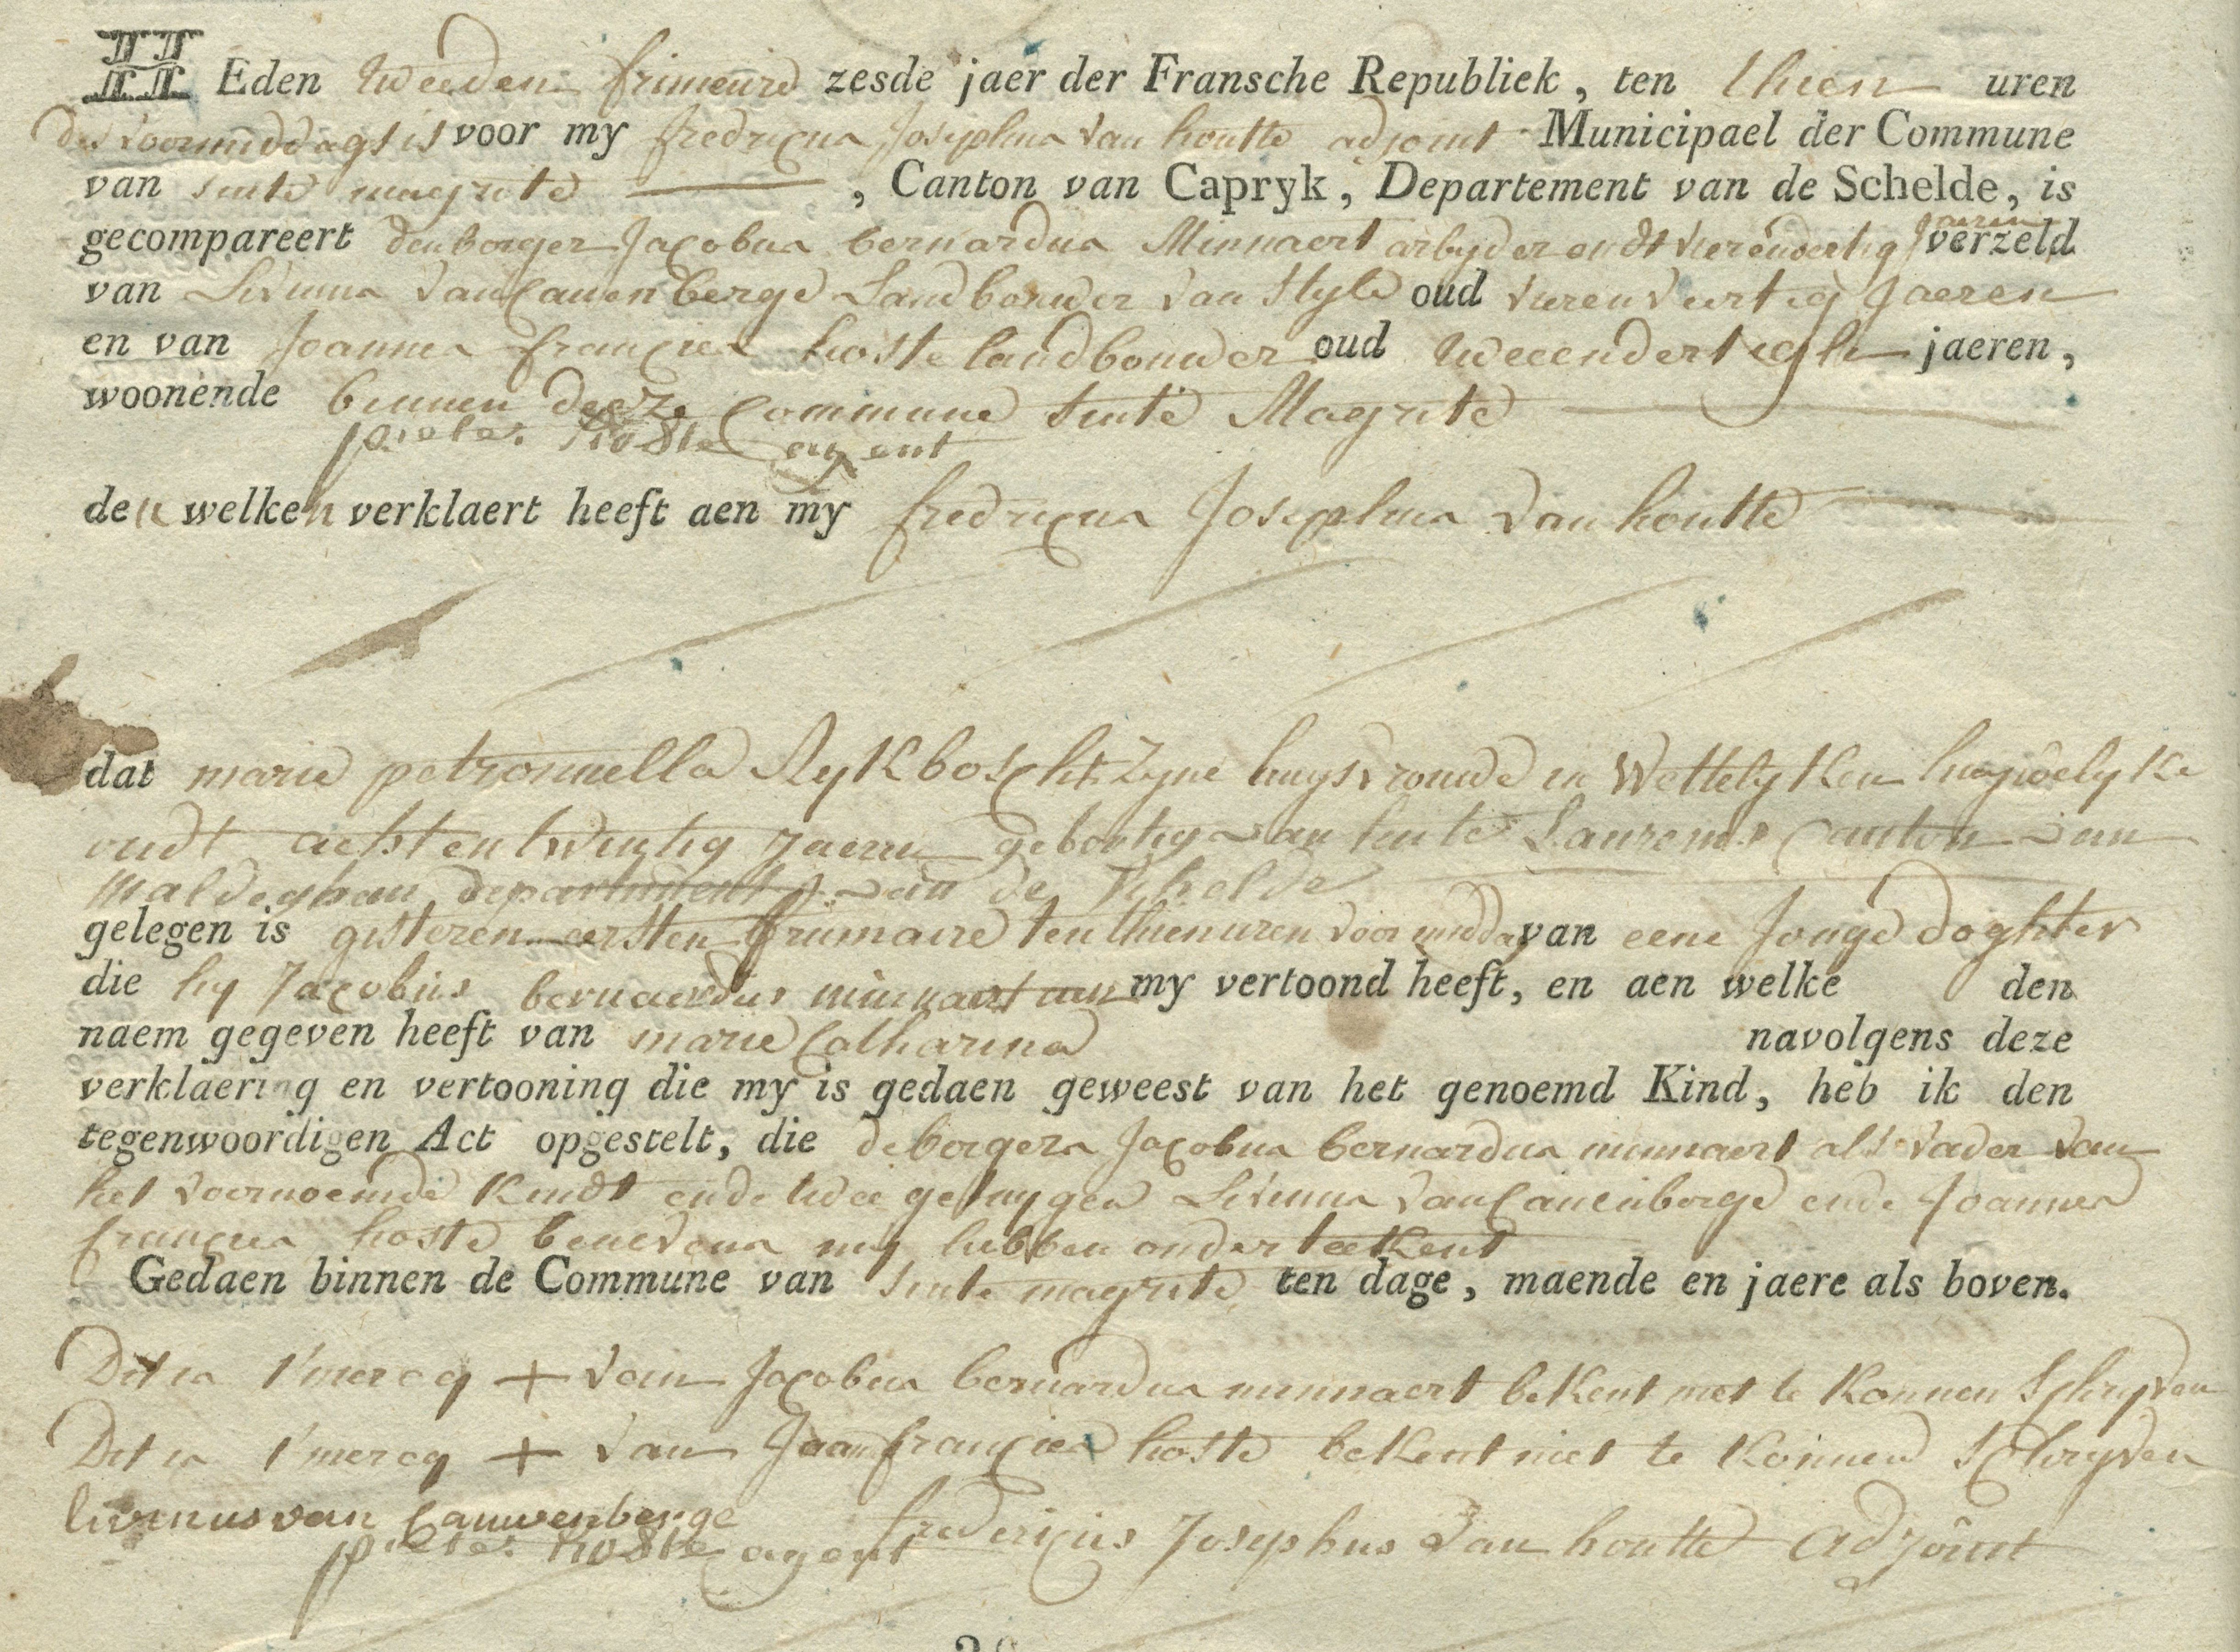 HEden tweeden frimeure zesde jaer der Fransche Republiek, ten thien uren
des voormiddags is voor my fredricus Josephus van houtte adjoint Municipael der Commune
van sinte magrite , Canton van Capryk, Departement van de Schelde, is
gecompareert den borger Jacobus bernardus Minnaert arbyder oudt vierendertig jaeren verzeld
van Livinus van Cauenberge Landbouwer van Style oud vierenveertig Jaeren
en van Joannes francies hoste landbouwer oud tweeendertigh jaeren,
woonende binnen deeze Commune sinte Magrite
pieter hoste agent
den welken verklaert heeft aen my fredricus Josephus van houtte
dat marie petronnella Rykboscht zyne huysvrouwe in Wettelyken huywelyke
oudt achtentwintig Jaeren gebortig van sinte Laurens Canton van
Maldeghem departement van de Schelde
gelegen is gisteren eersten frumaire ten thien uren voormiddag van eene Jonge doghter
die hy Jacobus bernaerdus minnaert aen my vertoond heeft, en aen welke den
naem gegeven heeft van marie Catharina navolgens deze
verklaering en vertooning die my is gedaen geweest van het genoemd Kind, heb ik den
tegenwoordigen Act opgestelt, die de borgers Jacobus bernardus minnaert als vader van
het voornoemde Kindt ende twee getuygen Livinus van Cauenberge ende Joannes
francies hoste benevens my hebben onderteekent
Gedaen binnen de Commune van sinte magrite ten dage, maende en jaere als boven.
Dit is t'mercq + van Jacobus bernardus minnaert bekent niet te konnen schryven
Dit is t'mercq + van Jaan francies hoste bekent niet te konnen schryven
livinus van Cauwenberge
pieter hoste agent fredericus Josephus van houtte adjoint